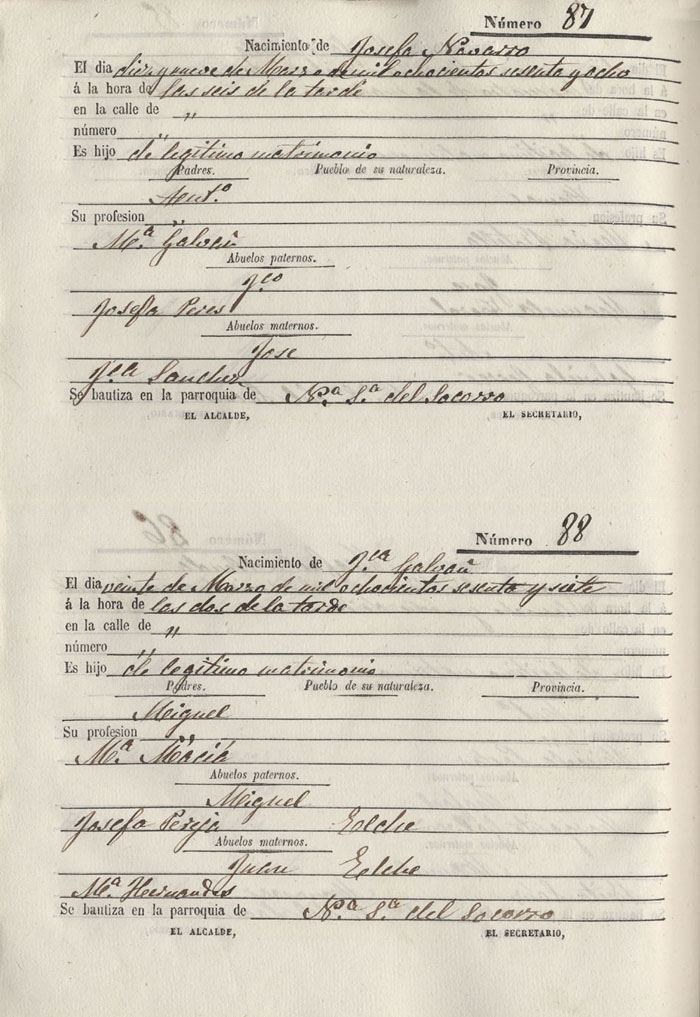 Número 87
Nacimiento de Josefa Navarro
El dia diez y nueve de Marzo de mil ochocientos sesenta y ocho
á la hora de las seis de la tarde
en la calle de "
número "
Es hijo de legitimo matrimonio
Padres. Pueblo de su naturaleza. Provincia.
Antº
Su profesion "
Mª Galvañ
Abuelos paternos.
Fco
Josefa Peres
Abuelos maternos.
Jose
Fca Sanchez
Se bautiza en la parroquia de Nª Sª del Socorro
EL ALCALDE, EL SECRETARIO,
Número 88
Nacimiento de Fca Galvañ
El dia veinte de Marzo de mil ochocientos sesenta y siete
á la hora de las dos de la tarde
en la calle de "
número
Es hijo de legitimo matrimonio
Padres. Pueblo de su naturaleza. Provincia.
Miguel
Su profesion "
Mª Maciá
Abuelos paternos.
Miguel
Josefa Pereja Elche
Abuelos maternos.
Juan Elche
Mª Hernandes
Se bautiza en la parroquia de Nª Sª del Socorro
EL ALCALDE, EL SECRETARIO,